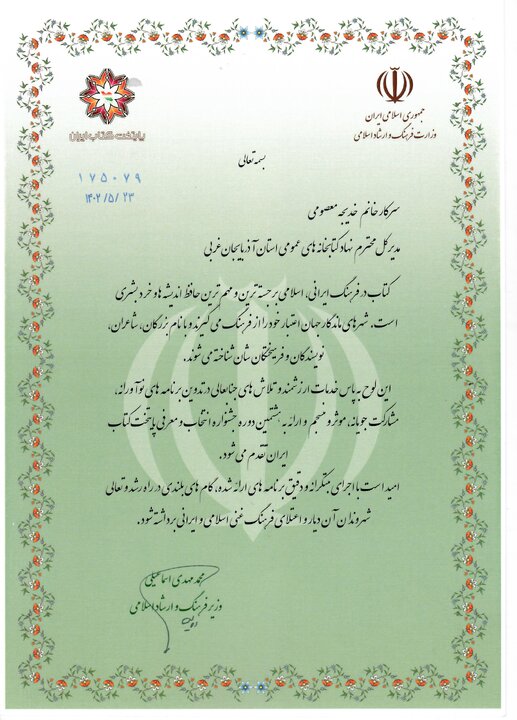 جمهوری اسلامی ایران
وزارت فرهنگ و ارشاد اسلامی
پایتخت کتاب ایران
بسمه تعالی
۱۷۵۰۷۹
۱۴۰۲/۵/۲۳
سرکار خانم خدیجه معصومی
مدیر کل محترم نهاد کتابخانه های عمومی استان آذربایجان غربی
کتاب در فرهنگ ایرانی، اسلامی برجسته ترین و مهم ترین حافظ اندیشه ها و خرد بشری
است. شهرهای ماندگار جهان اعتبار خود را از فرهنگ می گیرند و با نام بزرگان، شاعران،
نویسندگان و فرهیختگان شان شناخته می شوند.
این لوح به پاس خدمات ارزشمند و تلاش های جنابعالی در تدوین برنامه های نوآورانه،
مشارکت جویانه، موثر و منسجم و ارائه به هشتمین دوره جشنواره انتخاب و معرفی پایتخت کتاب
ایران تقدیم می شود.
امید است با اجرای مبتکرانه و دقیق برنامه های ارائه شده، گام های بلندی در راه رشد و تعالی
شهروندان آن دیار و اعتلای فرهنگ غنی اسلامی و ایرانی برداشته شود.
محمد مهدی اسماعیلی
وزیر فرهنگ و ارشاد اسلامی